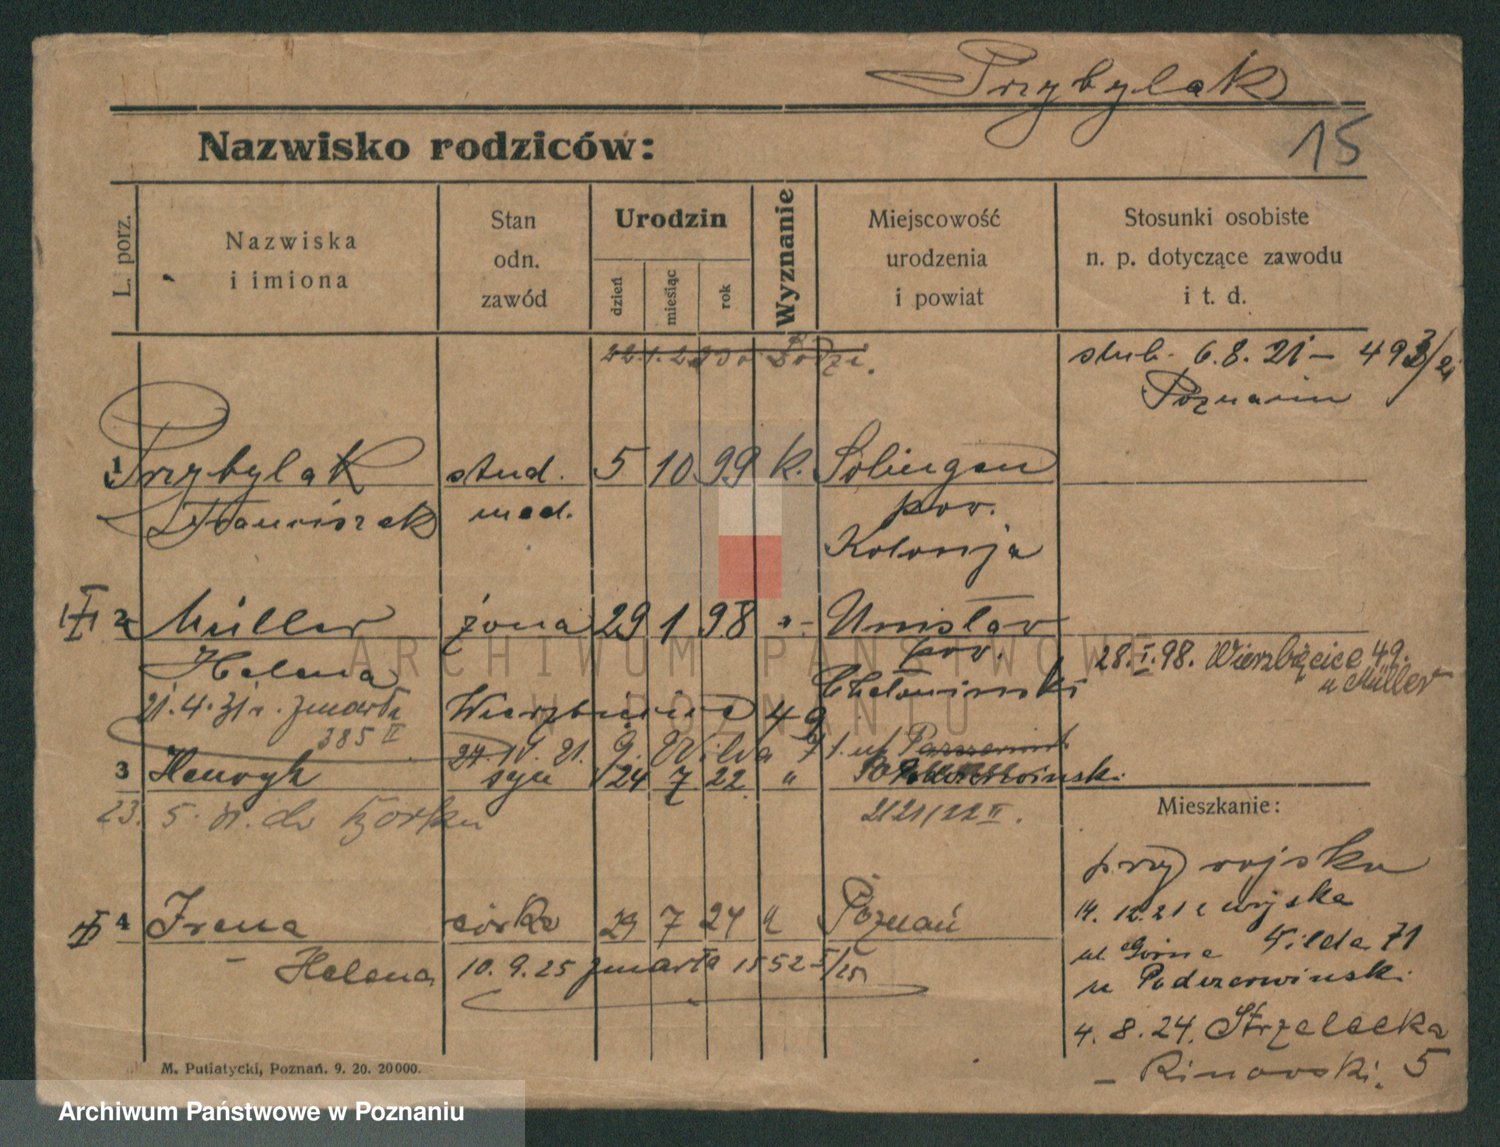 Przybylak
15
Nazwisko rodziców:
L. porz.
Nazwiska i imiona
Stan odn. zawód
Urodzin
dzień
miesiąc
rok
Wyznanie
Miejscowość urodzenia i powiat
Stosunki osobiste n. p. dotyczące zawodu i t. d.
ślub. 6.8.21 – 493/21
Poznaniu
1 Przybylak stud. 5 10 99 k. Solingen
Franciszek med. pow.
Kolonja
2 Müller żona 29 1 98 "- Unisław
Helena pow. 28.I.98. Wierzbięcice 49.
Chełmiński u Müller
21.4.31 r. zmarła Wierzbięcice 49
385 II
G. Wilda 71. u
3 Henryk syn 24 7 22 " Podczerwiński
2121/22 II.
23. 5.
Mieszkanie:
przy wojsku
4 Irena córka 29 7 24 " Poznań
– Helena 10.9.25 zmarła 1552 I/25
14.12.21 z wojska
ul Górna Wilda 71
u Podczerwiński
4.8.24. Strzelecka
5
M. Putiatycki, Poznań. 9. 20. 20000.
ARCHIWUM PAŃSTWOWE
W POZNANIU
Archiwum Państwowe w Poznaniu